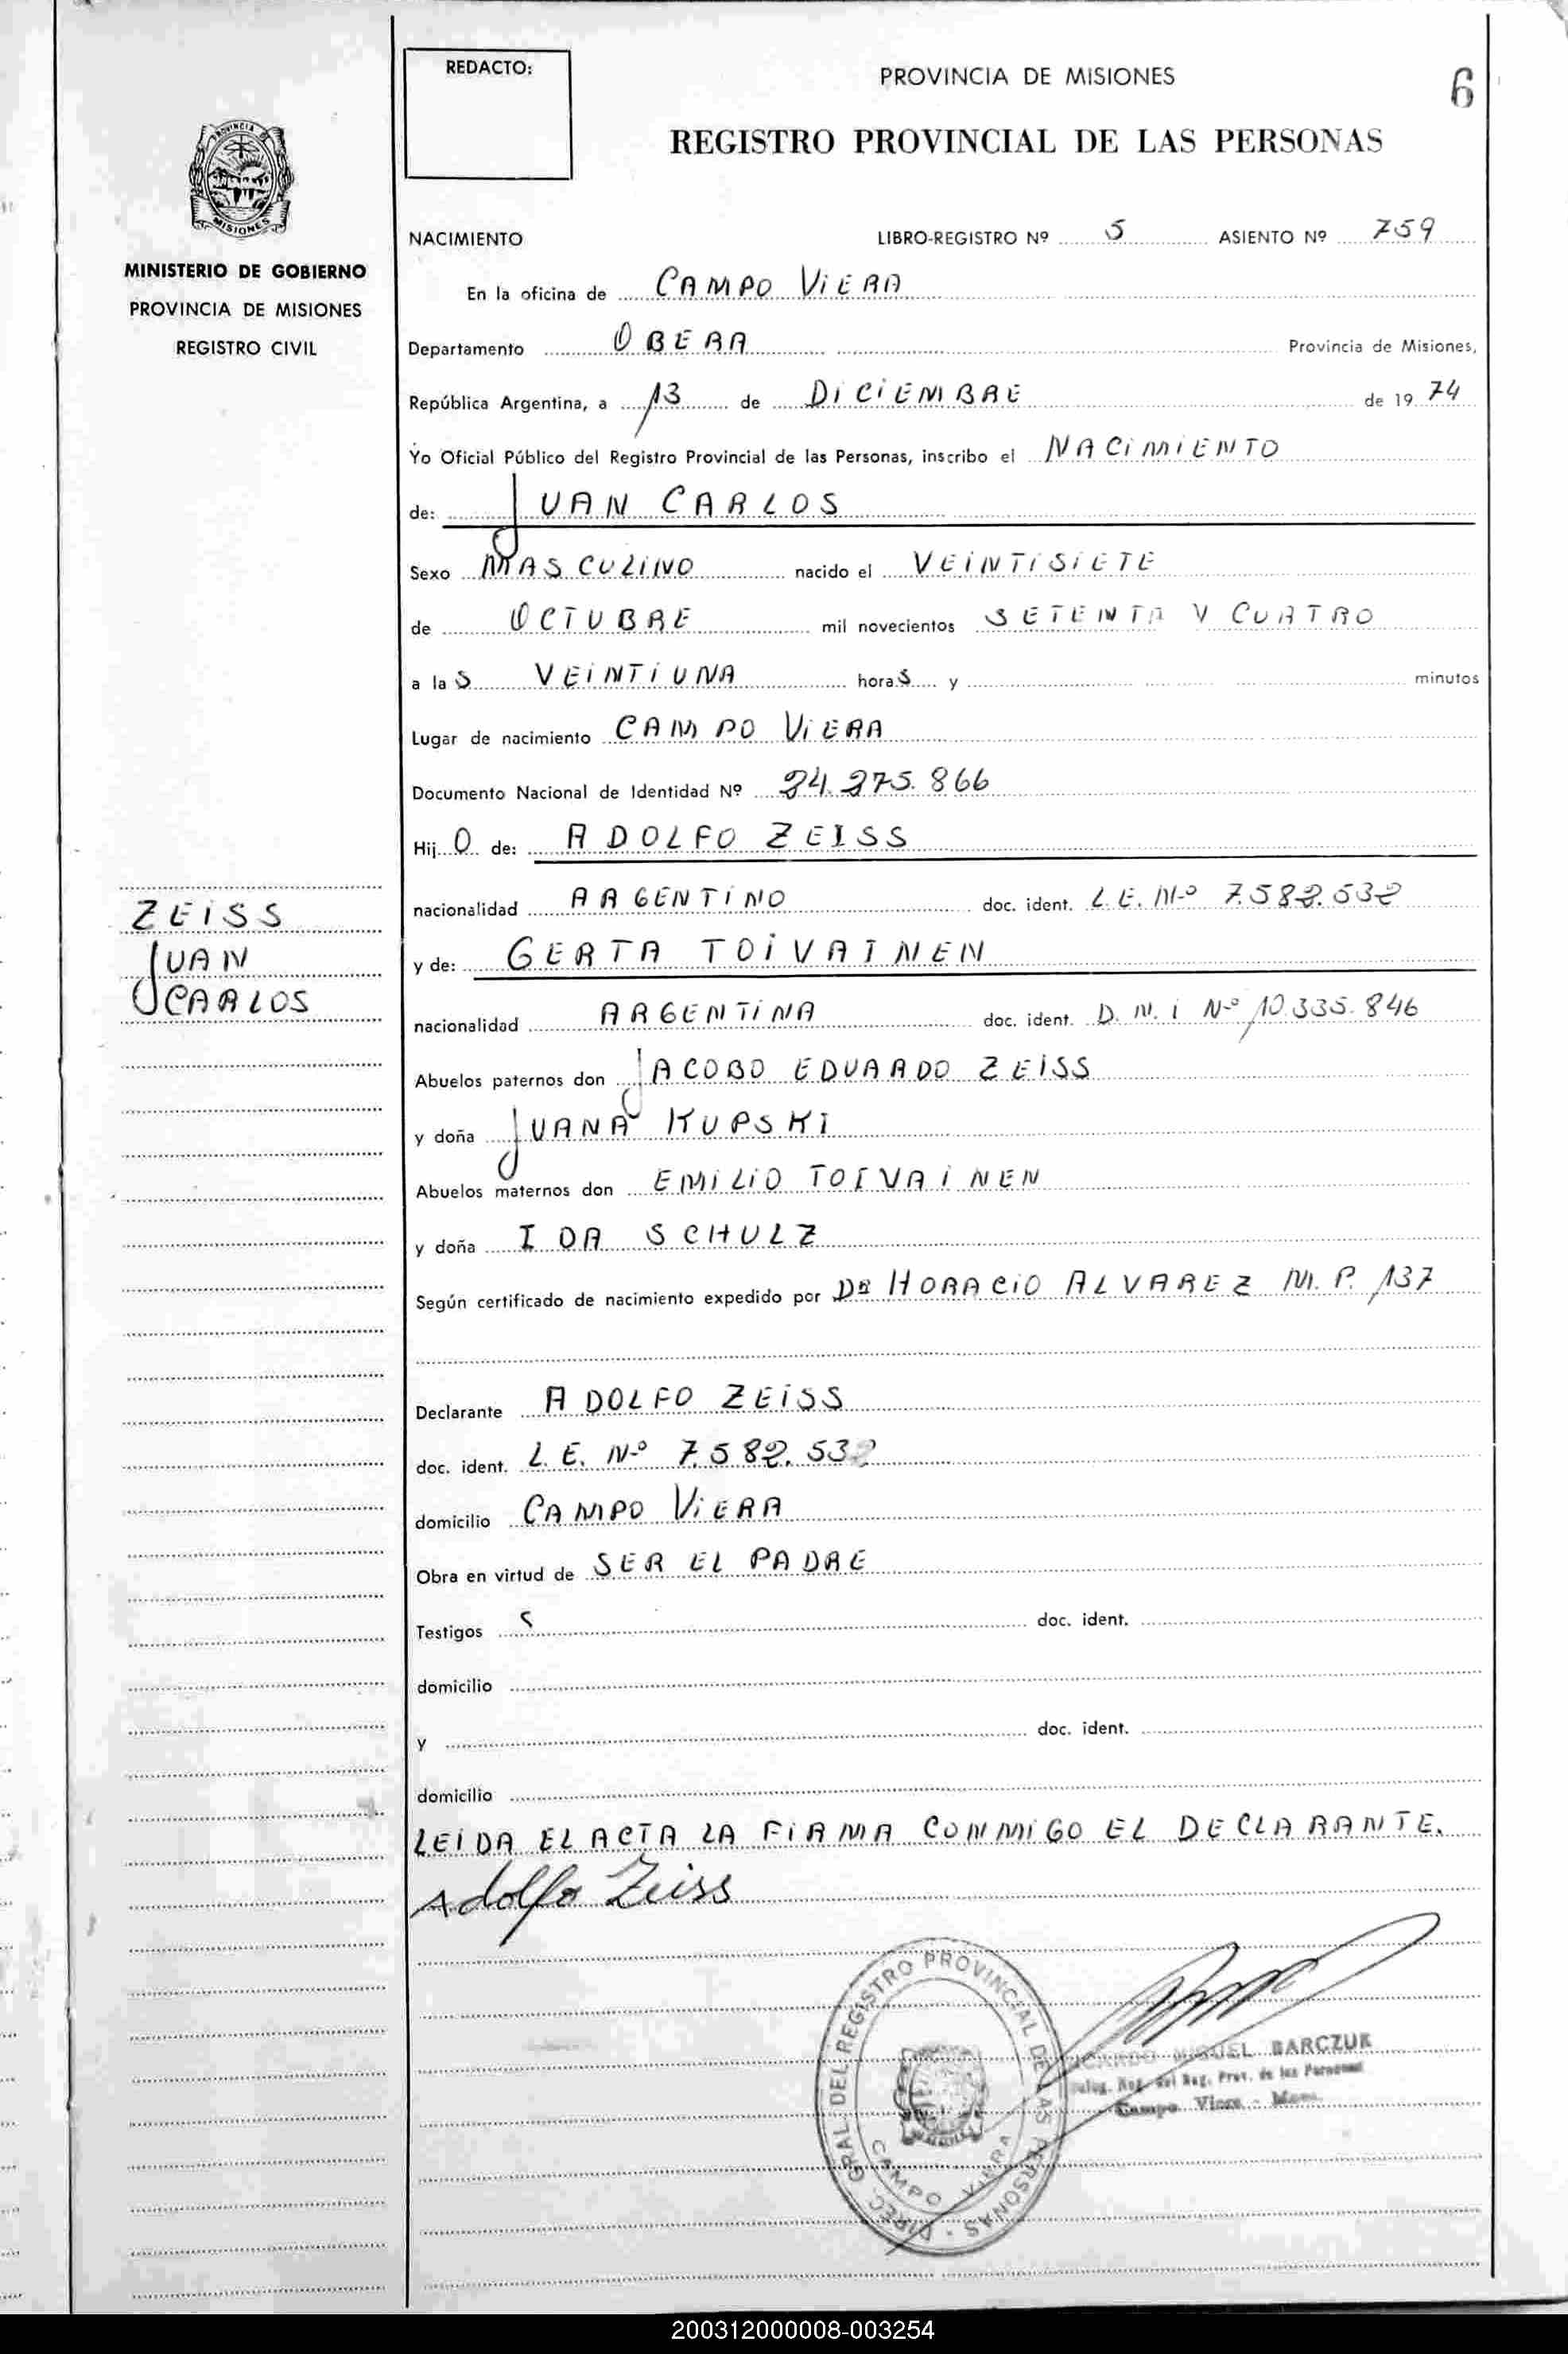 REDACTO:
PROVINCIA DE MISIONES
6
REGISTRO PROVINCIAL DE LAS PERSONAS
PROVINCIA DE
MISIONES
MINISTERIO DE GOBIERNO
PROVINCIA DE MISIONES
REGISTRO CIVIL
NACIMIENTO LIBRO-REGISTRO Nº 5 ASIENTO Nº 759
En la oficina de CAMPO VIERA
Departamento OBERA Provincia de Misiones,
República Argentina, a 13 de DICIEMBRE de 1974
Yo Oficial Público del Registro Provincial de las Personas, inscribo el NACIMIENTO
de: JUAN CARLOS
Sexo MASCULINO nacido el VEINTISIETE
de OCTUBRE mil novecientos SETENTA Y CUATRO
a las VEINTIUNA horas y minutos
Lugar de nacimiento CAMPO VIERA
Documento Nacional de Identidad Nº 24.275.866
Hijo de: ADOLFO ZEISS
nacionalidad ARGENTINO doc. ident. L.E. Nº 7.582.532
y de: GERTA TOIVAINEN
nacionalidad ARGENTINA doc. ident. D.N.I Nº 10.335.846
Abuelos paternos don JACOBO EDUARDO ZEISS
y doña JUANA KUPSKI
Abuelos maternos don EMILIO TOIVAINEN
y doña IDA SCHULZ
Según certificado de nacimiento expedido por DR HORACIO ALVAREZ M.P. 137
Declarante ADOLFO ZEISS
doc. ident. L.E. Nº 7.582.532
domicilio CAMPO VIERA
Obra en virtud de SER EL PADRE
Testigos S doc. ident.
domicilio
y doc. ident.
domicilio
LEIDA EL ACTA LA FIRMA CONMIGO EL DECLARANTE.
Adolfo Zeiss
ZEISS
JUAN
CARLOS
DIREC. GRAL. DEL REGISTRO PROVINCIAL DE LAS PERSONAS
CAMPO VIERA
RICARDO MIGUEL BARCZUK
Reg. del Reg. Prov. de las Personas
Campo Viera - Mnes.
200312000008-003254